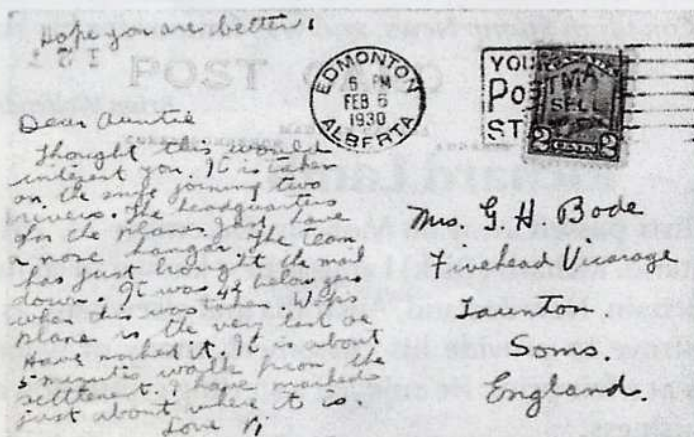 Hope you are better.
POST CARD
EDMONTON
6 PM
FEB 6
1930
ALBERTA
YOU
Po
ST
2
Dear Auntie
Thought this would
interest you. It is taken
on the snye joining two
rivers. The headquarters
for the planes. Just have
a nose hangar. The team
has just brought the mail
down. It was 44 below zero
when this was taken. Wop's
plane is the very last one
Have marked it. It is about
5 minutes walk from the
settlement. I have marked
just about where it is.
Love
Mrs. G. H. Bode
Fivehead Vicarage
Taunton
Soms.
England.